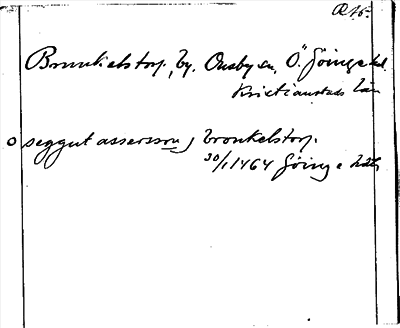 Æ 46.
Brunkelstorp, by. Ousby sn, Ö. Göinge hd.
Kristianstads län
seggut assersson, bronkelstorp.
30/1 1464 Göinge häb